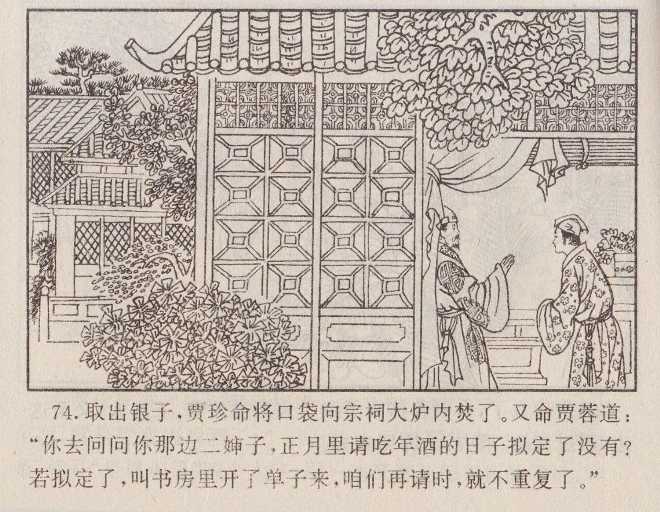 74. 取出银子，贾珍命将口袋向宗祠大炉内焚了。又命贾蓉道：
“你去问问你那边二婶子，正月里请吃年酒的日子拟定了没有？
若拟定了，叫书房里开了单子来，咱们再请时，就不重复了。”